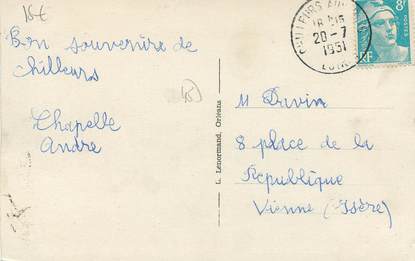 15€
Bon souvenire de
Chilleurs
Chapelle
Andre
45
L. Lenormand, Orléans
CHILLEURS AUX
18 H 15
20-7
1951
LOIRET
8F
RF
POSTES
M Davin
8 place de la
République
Vienne (Isère)